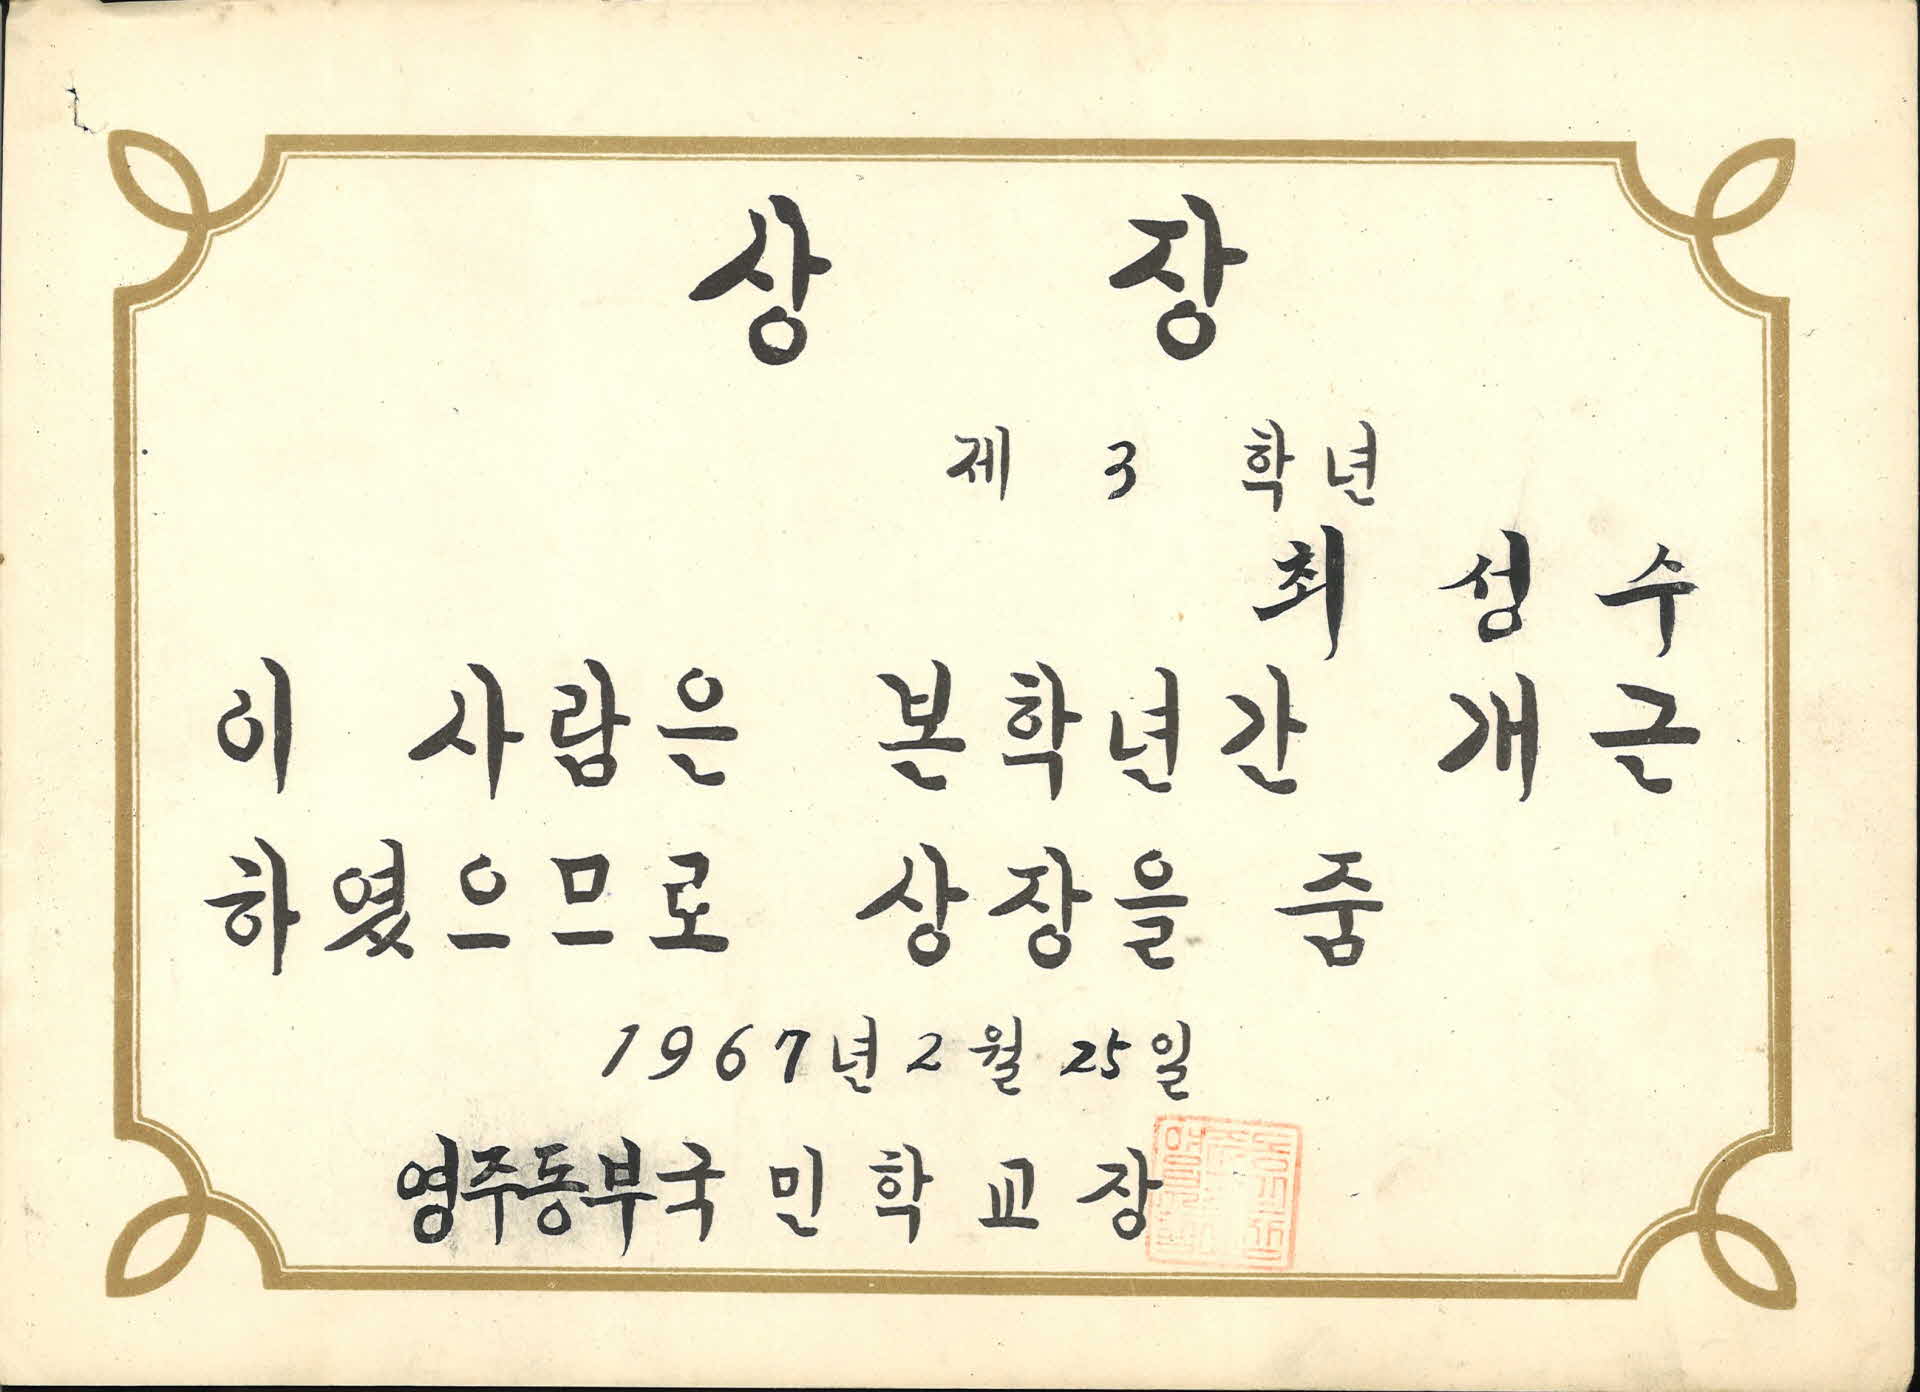 상 장
제 3 학년
최 성 수
이 사람은 본학년간 개근
하였으므로 상장을 줌
1967년 2월 25일
영주동부국민학교장